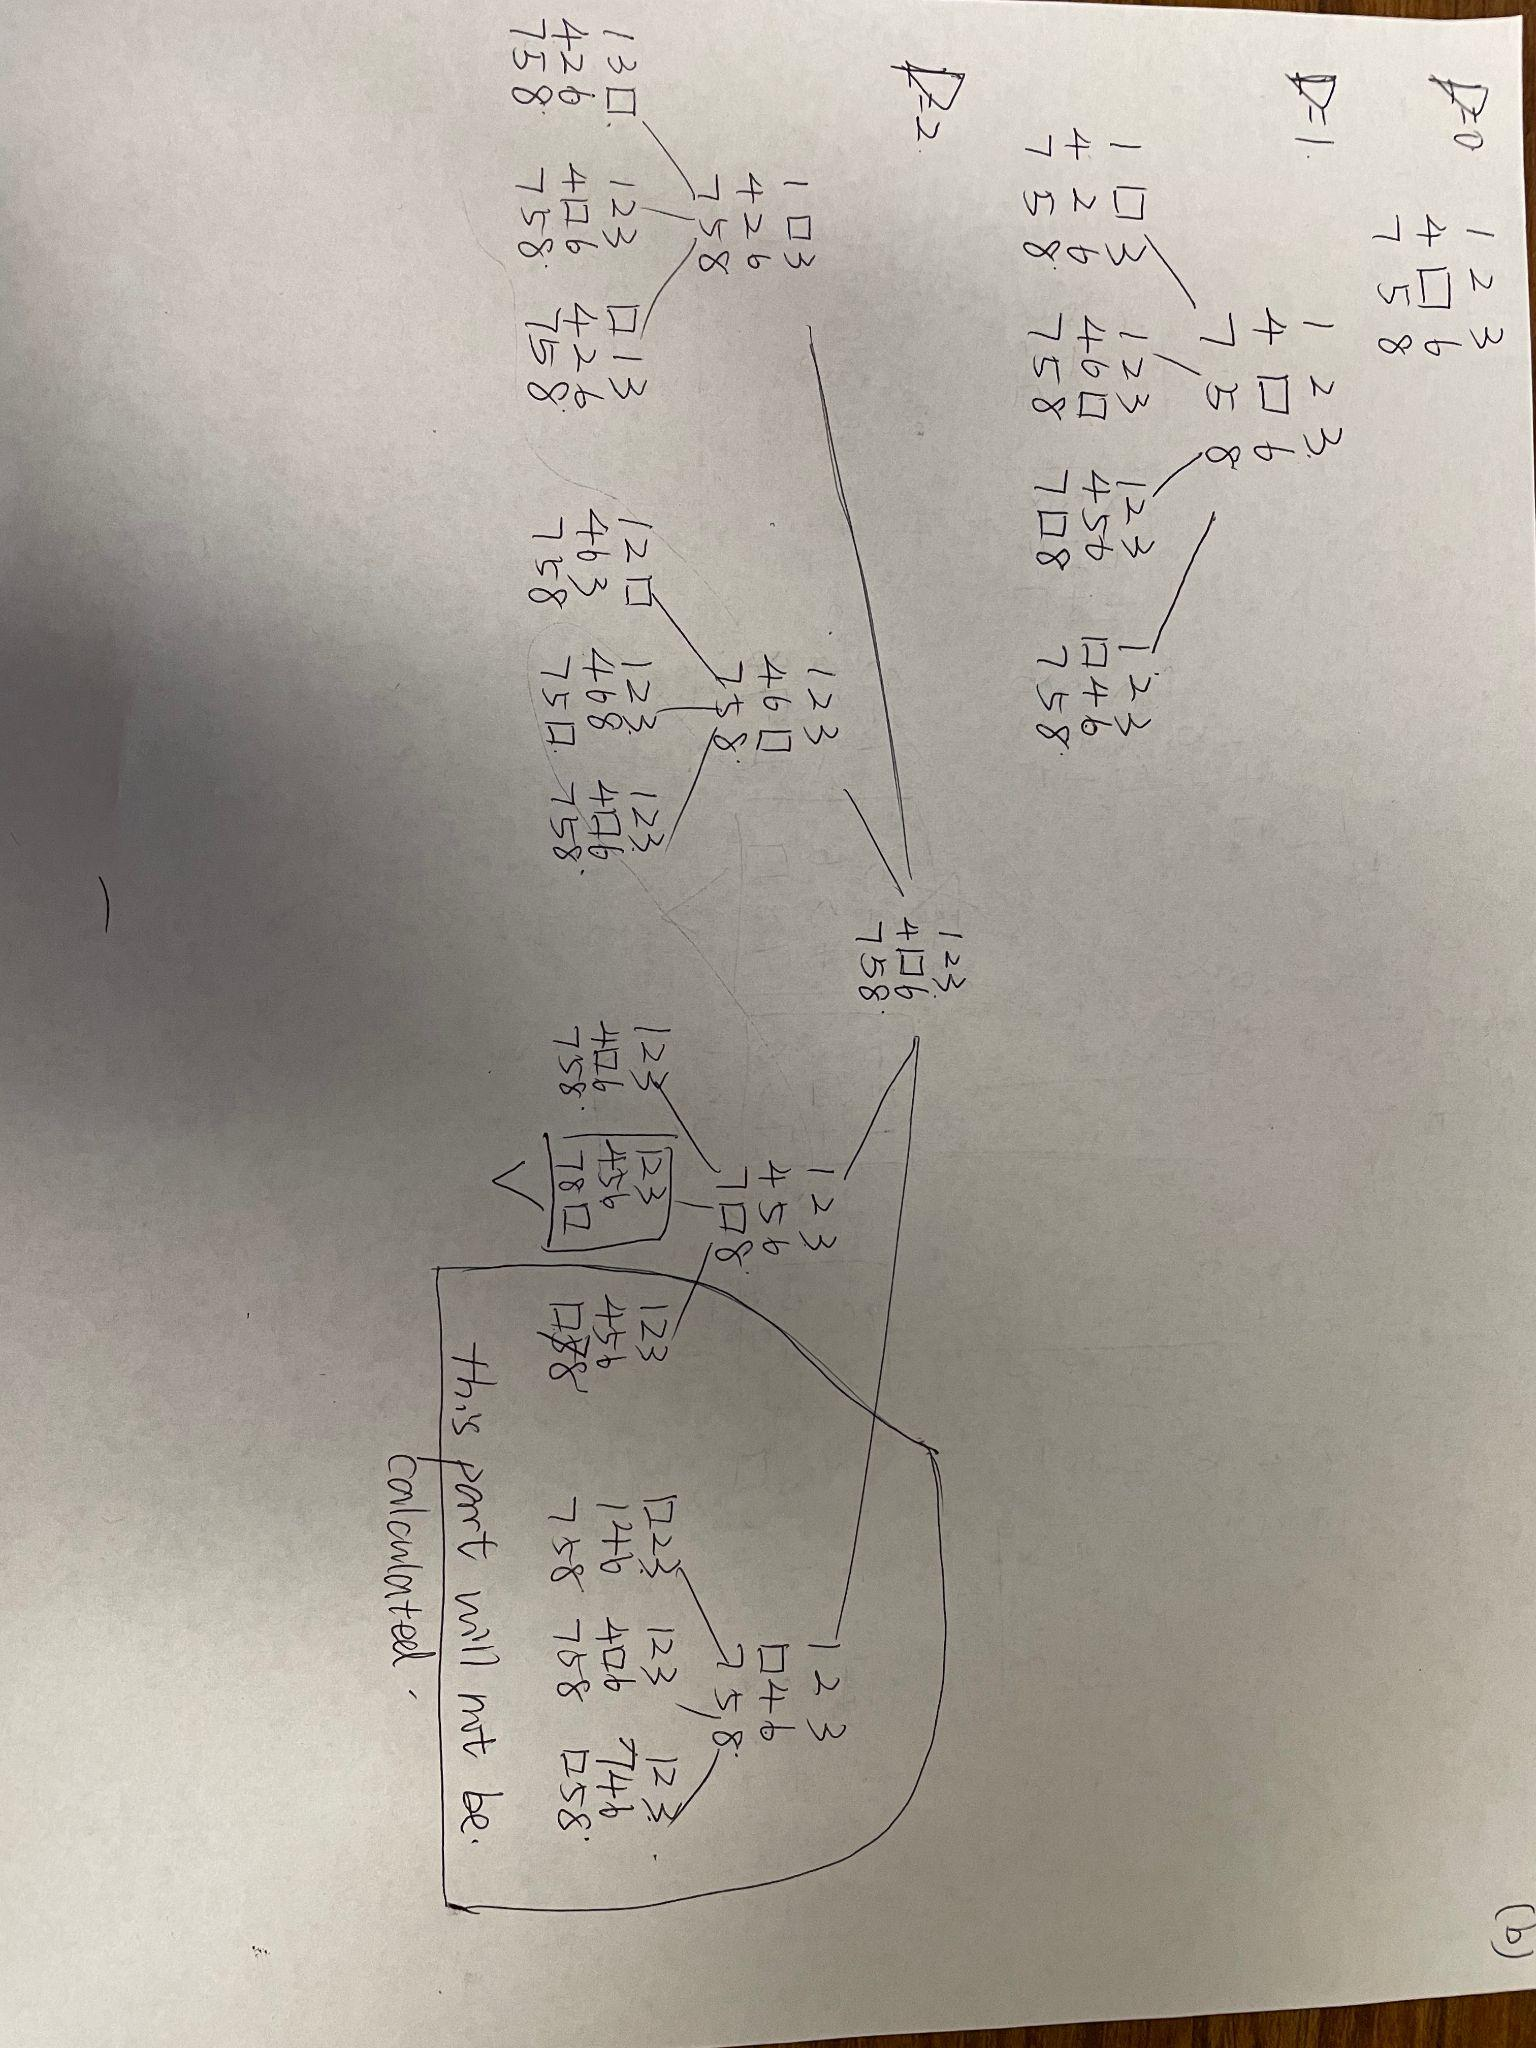 (b)
D=0
1 2 3
4 □ 6
7 5 8
D=1.
1 2 3.
4 □ 6
7 5 8
1 □ 3
4 2 6
7 5 8.
1 2 3
4 6 □
7 5 8
1 2 3
4 5 6
7 □ 8
1 2 3
□ 4 6
7 5 8.
D=2.
1 2 3.
4 □ 6
7 5 8.
1 □ 3
4 2 6
7 5 8
1 2 3
4 6 □
7 5 8.
1 2 3
4 5 6
7 □ 8.
1 2 3
□ 4 6
7 5 8.
1 3 □.
4 2 6
7 5 8.
1 2 3
4 □ 6
7 5 8.
□ 1 3
4 2 6
7 5 8.
1 2 □
4 6 3
7 5 8
1 2 3.
4 6 8
7 5 □.
1 2 3.
4 □ 6
7 5 8.
1 2 3
4 □ 6
7 5 8.
1 2 3
4 5 6
7 8 □
1 2 3
4 5 6
□ 8
□ 2 3.
1 4 6
7 5 8
1 2 3
4 □ 6
7 5 8
1 2 3.
7 4 6
□ 5 8.
this part will not be.
calculated.